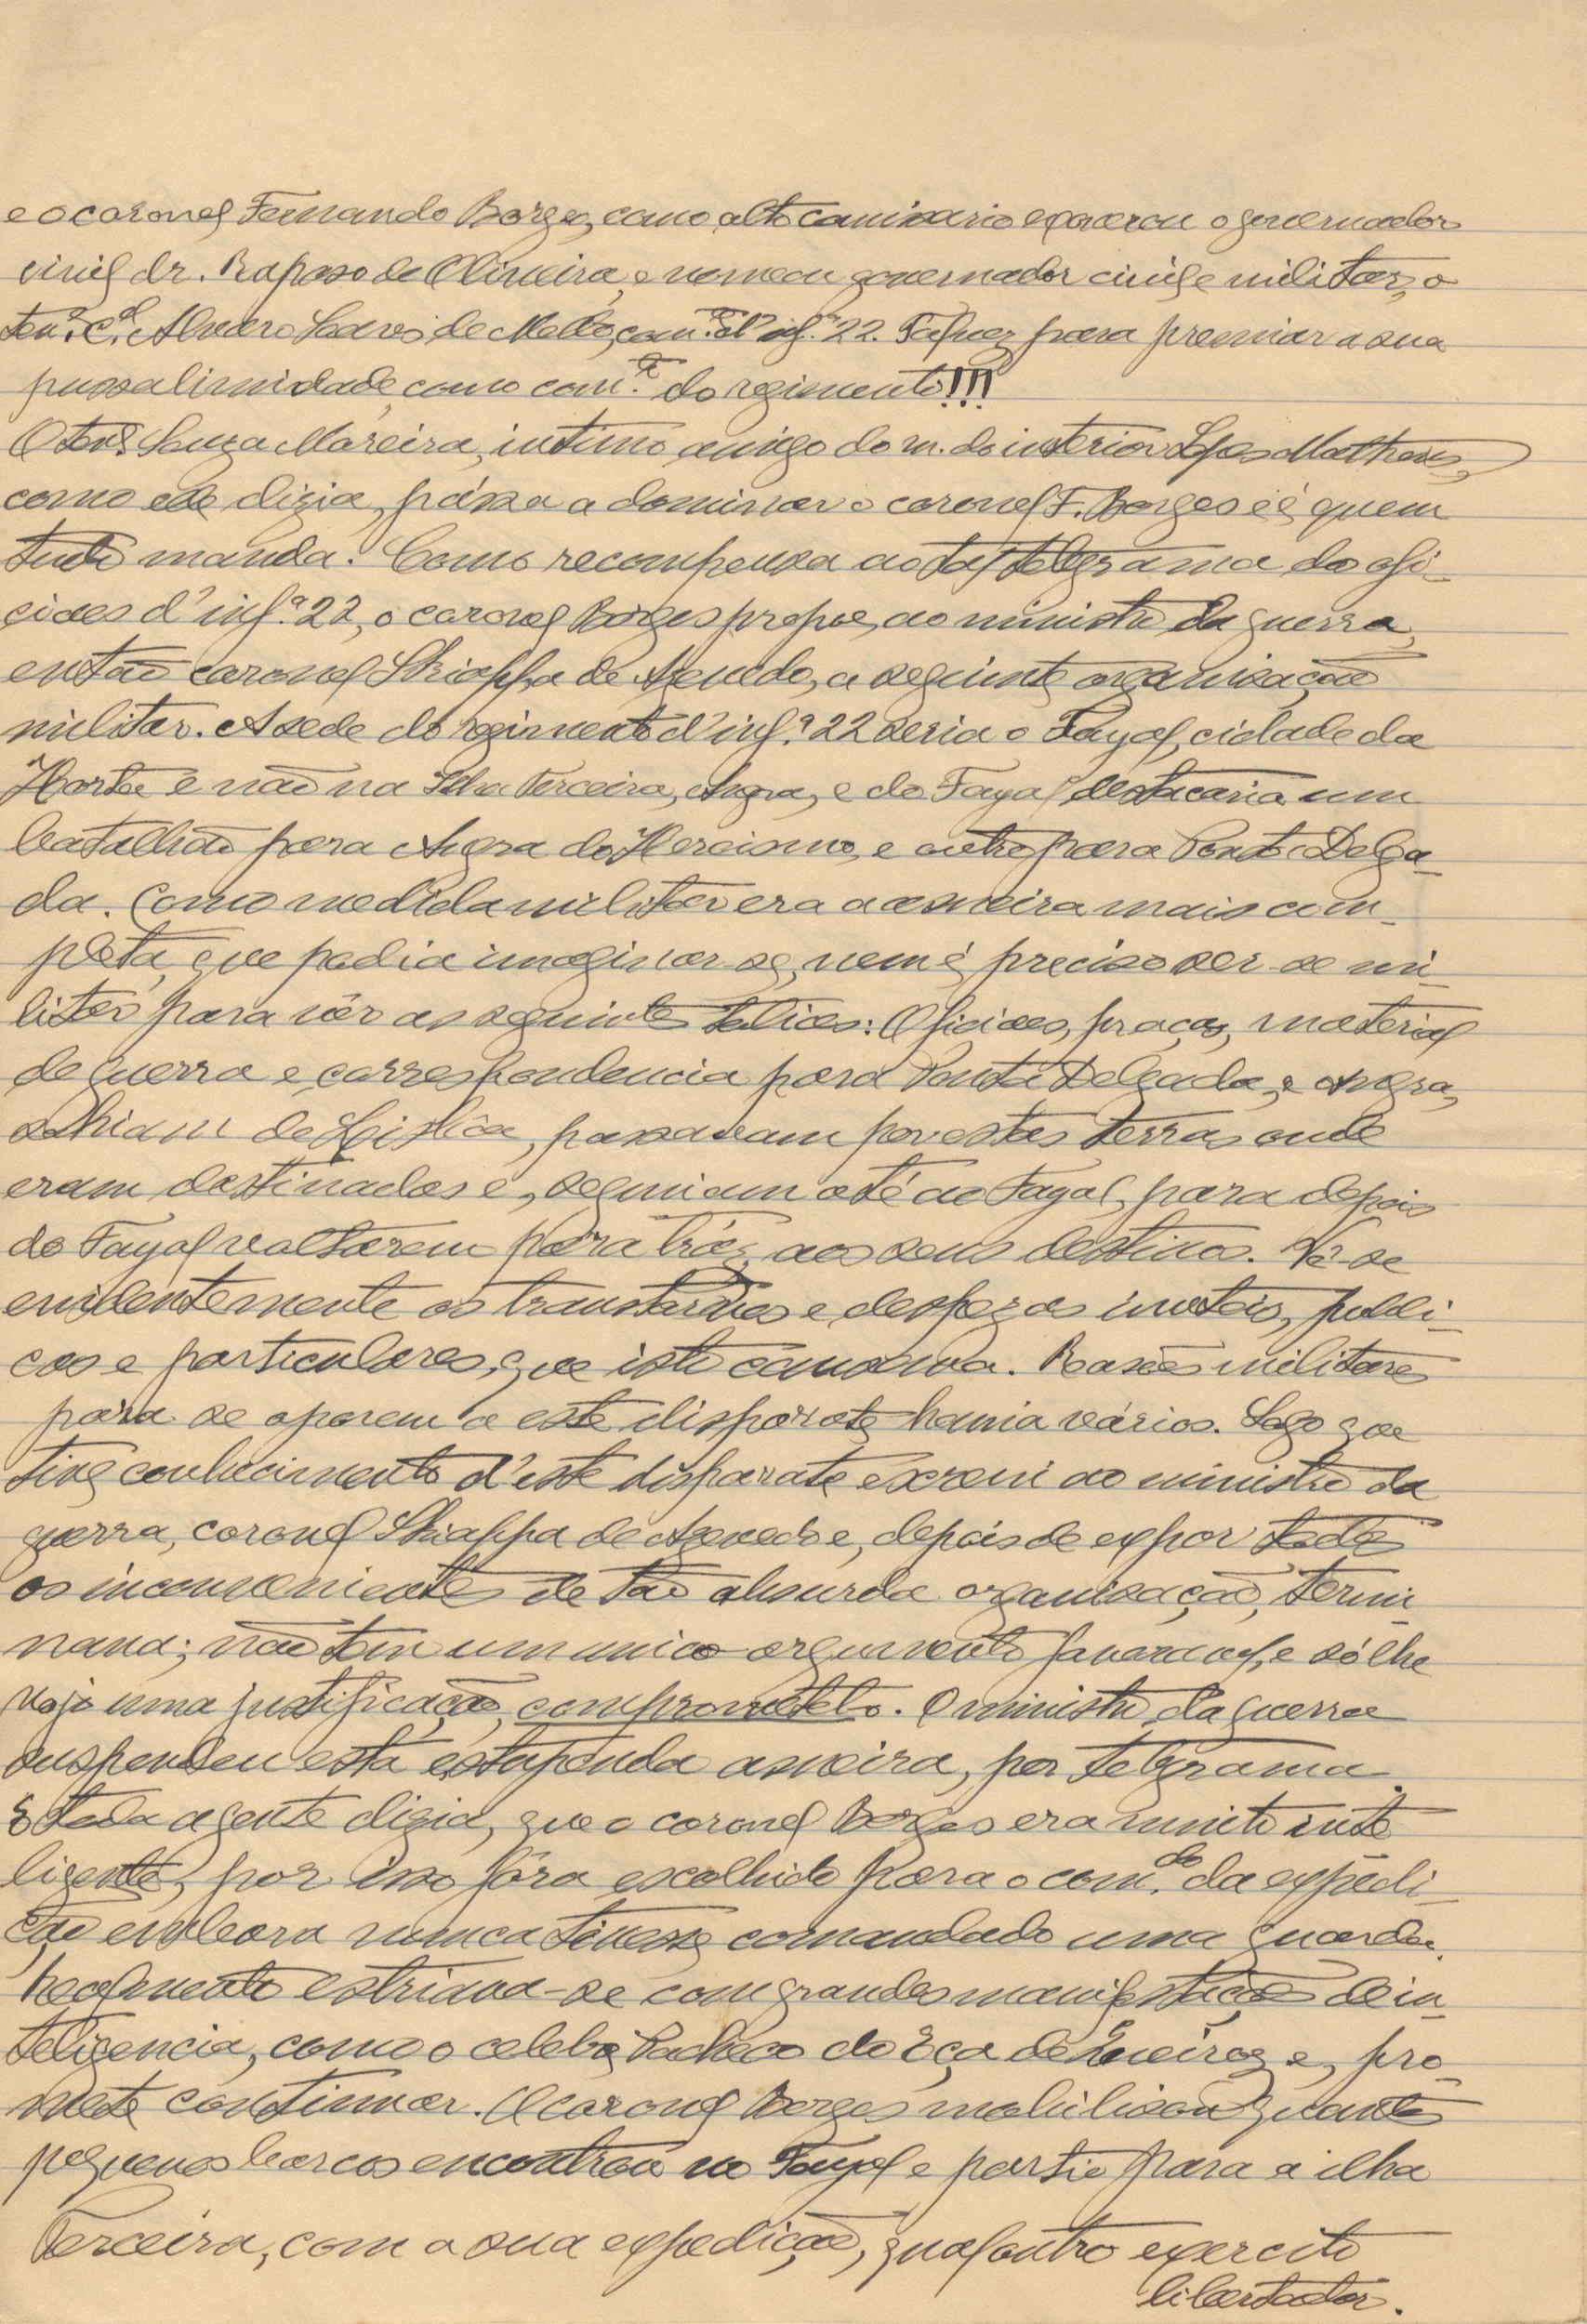 e o coronel Fernando Borges, como alto comissario exonerou o governador
civil dr. Raposo de Oliveira, e nomeou governador civil e militar, o
ten.e C.el Alvaro Soares de Mello, com.te d'inf.a 22. Talvez para premiar a sua
pussalimidade, como com.te do regimento!!!
O ten.e Souza Moreira, intimo amigo do m. do interior Lopes Matheus,
como ele dizia, pássa a dominar o coronel F. Borges e é quem
tudo manda. Como recompensa ao tal telegrama do ofi-
ciaes d'inf.a 22, o coronel Borges propoe, ao ministro da guerra,
então coronel Skiappa de Azevedo, a seguinte organisação
militar. A sede do regimento d'inf.a 22 seria o Fayal, cidade da
Horta e não na Ilha Terceira, Angra, e do Fayal destacaria um
batalhão para Angra do Heroismo, e outro para Ponta Delga-
da. Como medida militar era a asneira mais com-
pleta, que podia imaginar-se, nem é preciso ser-se mi-
litar para vêr as seguintes : Oficiaes, praças, material
de guerra e correspondencia para Ponta Delgada, e Angra,
sahiam de Lisbôa, passavam por estas terras onde
eram destinados e, seguiam até ao Fayal, para depois
do Fayal voltarem para traz, aos seus destinos. Vê-se
evidentemente os transtornos e despezas inuteis, publi-
cas e particulares, que isto causava. Rasões militares
para se oporem a este disparate havia vários. Logo que
tive conhecimento d'este disparate escrevi ao ministro da
guerra, coronel Skiappa de Azevedo e, depois de expor todos
os inconvenientes de tão absurda organisação, termi-
nava; não tem um unico argumento favoravel, e só lhe
vejo uma justificação, comprometelo. O ministro da guerra
suspendeu esta estupenda asneira, por telegrama.
E toda a gente dizia, que o coronel Borges era muito inte-
ligente, por isso fôra escolhido para o com.do da expedi-
ção embora nunca tivesse comandado uma guarda.
Realmente estriava-se com grandes manifestações de in-
teligencia, como o celebre Pacheco do Eça de Queiroz e, pro-
mete continuar. O coronel Borges mobilisou quantos
pequenos barcos encontrou no Fayal e partio para a ilha
Terceira, com a sua expedição, qual outro exercito
libertador.